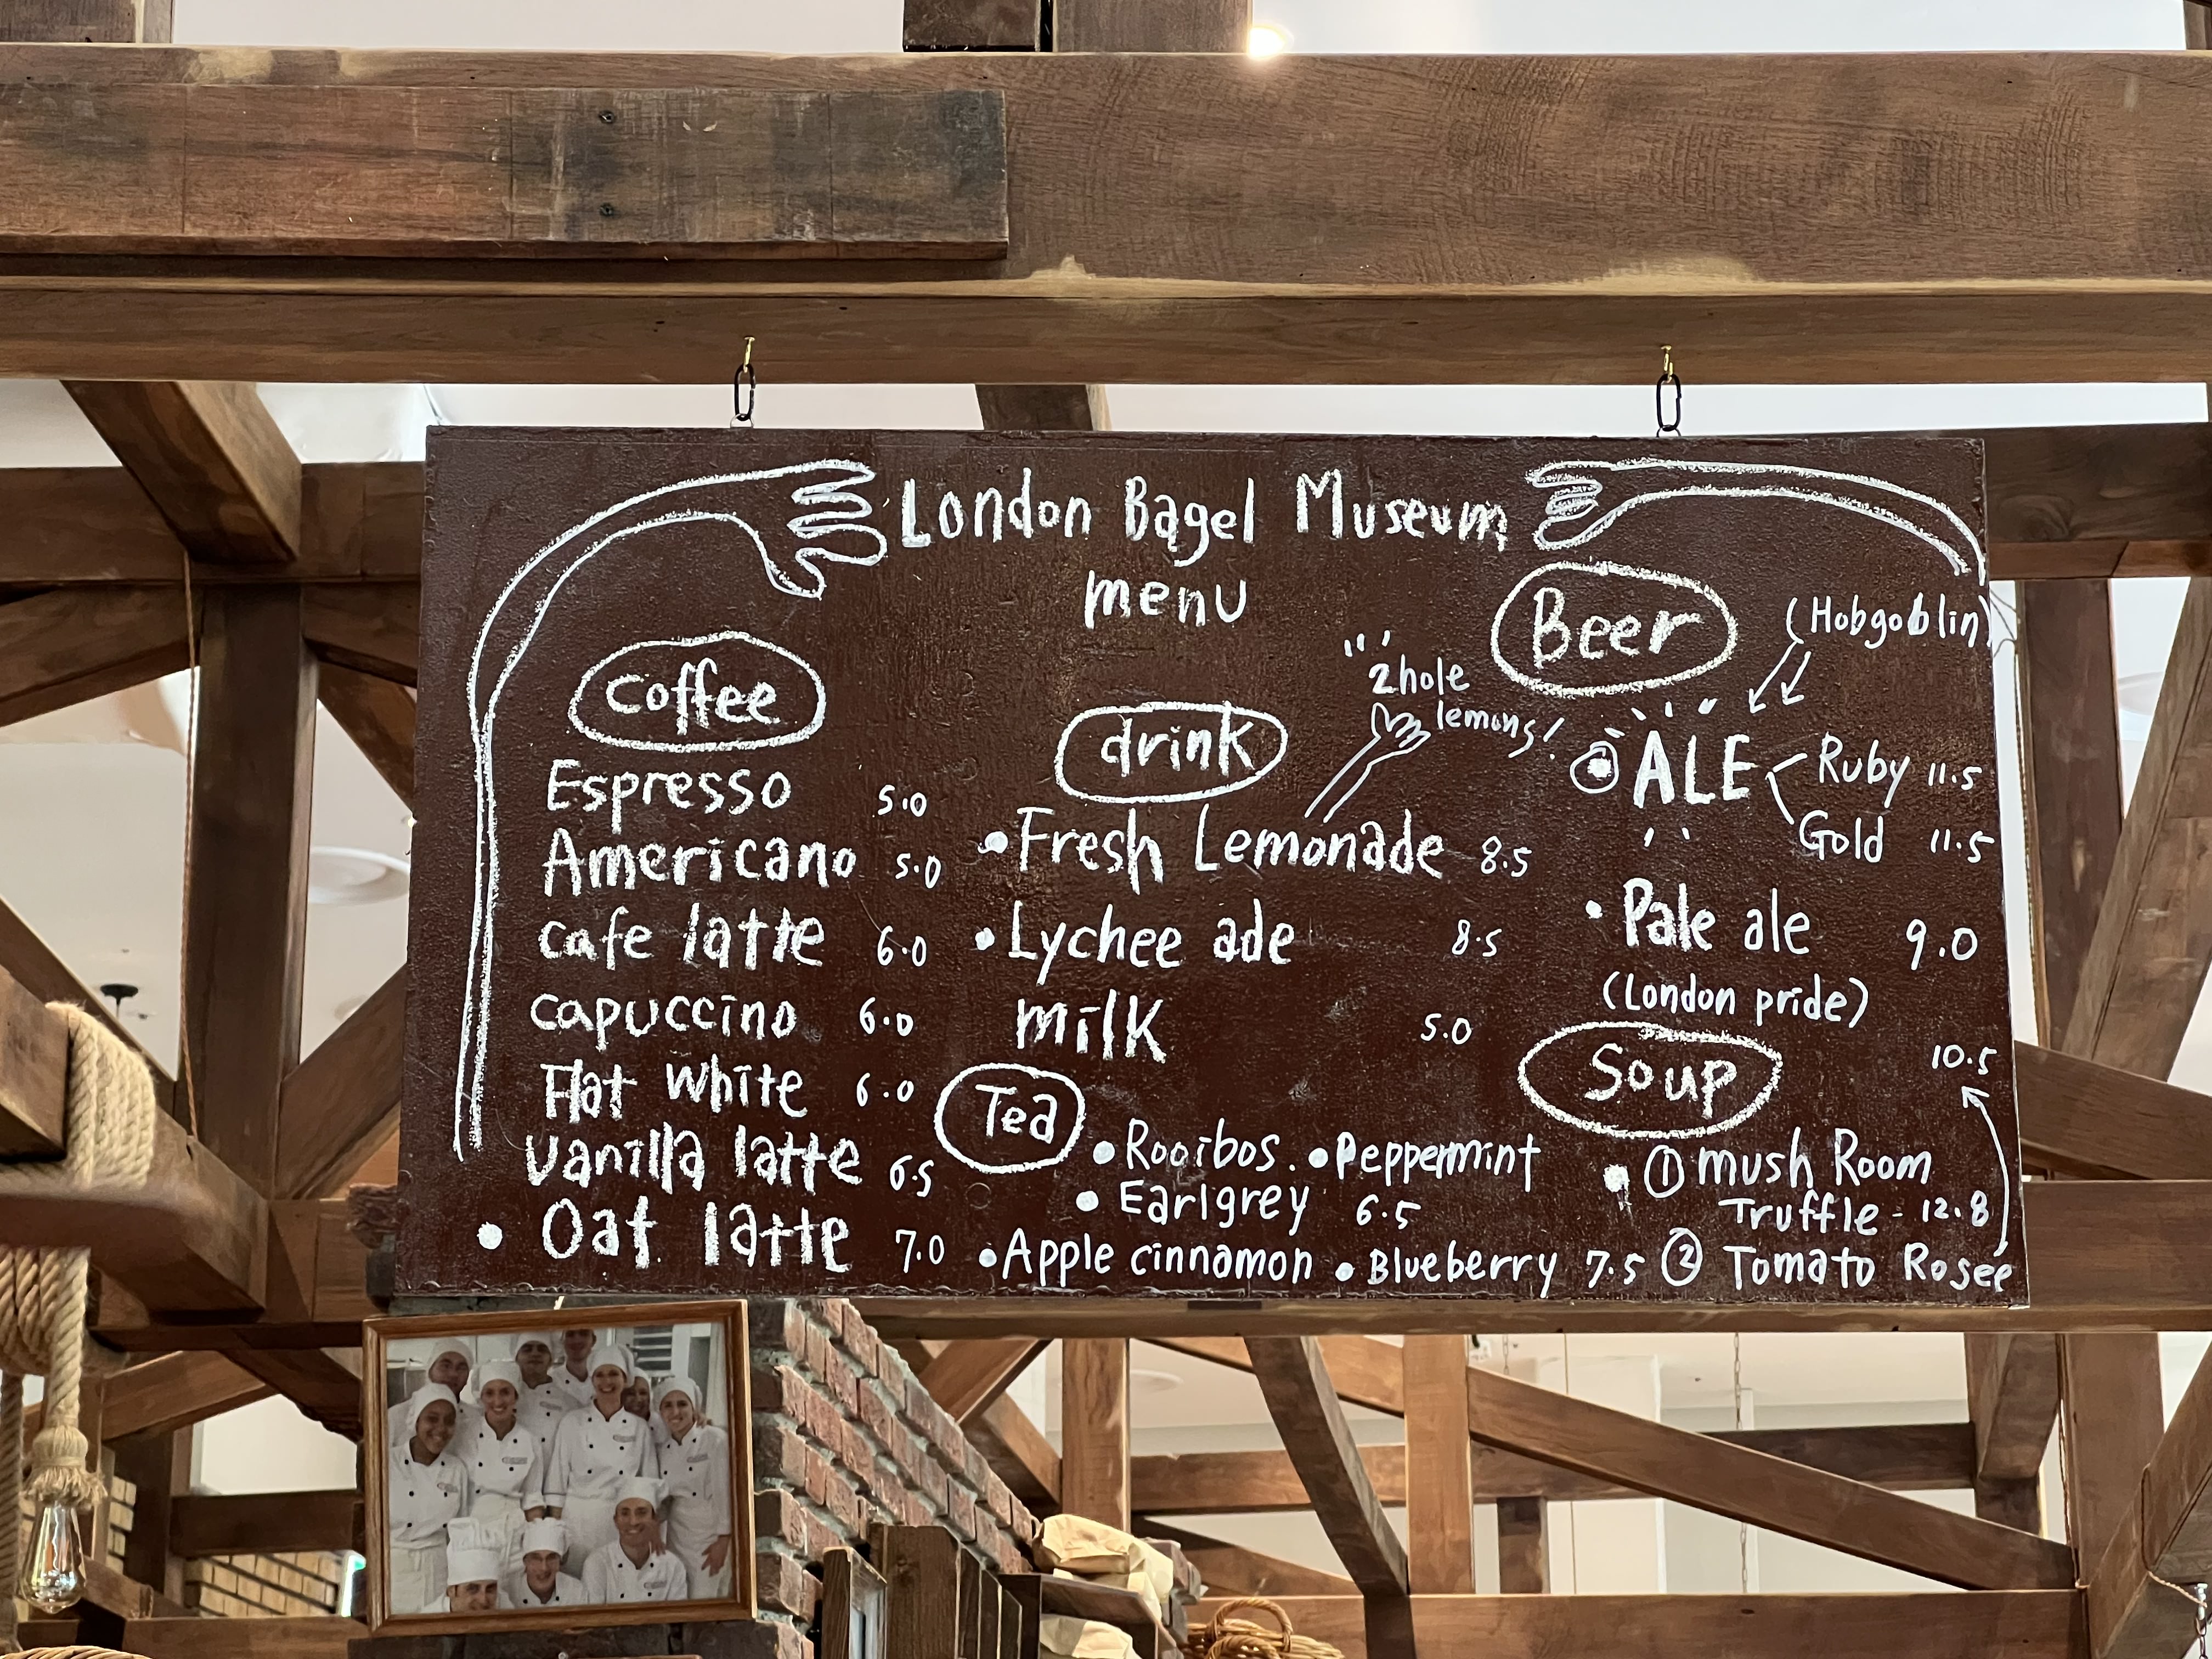 London Bagel Museum
menu
coffee
Espresso 5.0
Americano 5.0
cafe latte 6.0
capuccino 6.0
Flat white 6.0
vanilla latte 6.5
• Oat latte 7.0
drink
2hole
lemons!
• Fresh Lemonade 8.5
• Lychee ade 8.5
milk 5.0
Tea
• Rooibos. • Peppermint
• Earlgrey 6.5
• Apple cinnamon • Blueberry 7.5
Beer
(Hobgoblin)
ALE
Ruby 11.5
Gold 11.5
• Pale ale 9.0
(London pride)
Soup
10.5
• ① mush Room
Truffle - 12.8
② Tomato Rosee